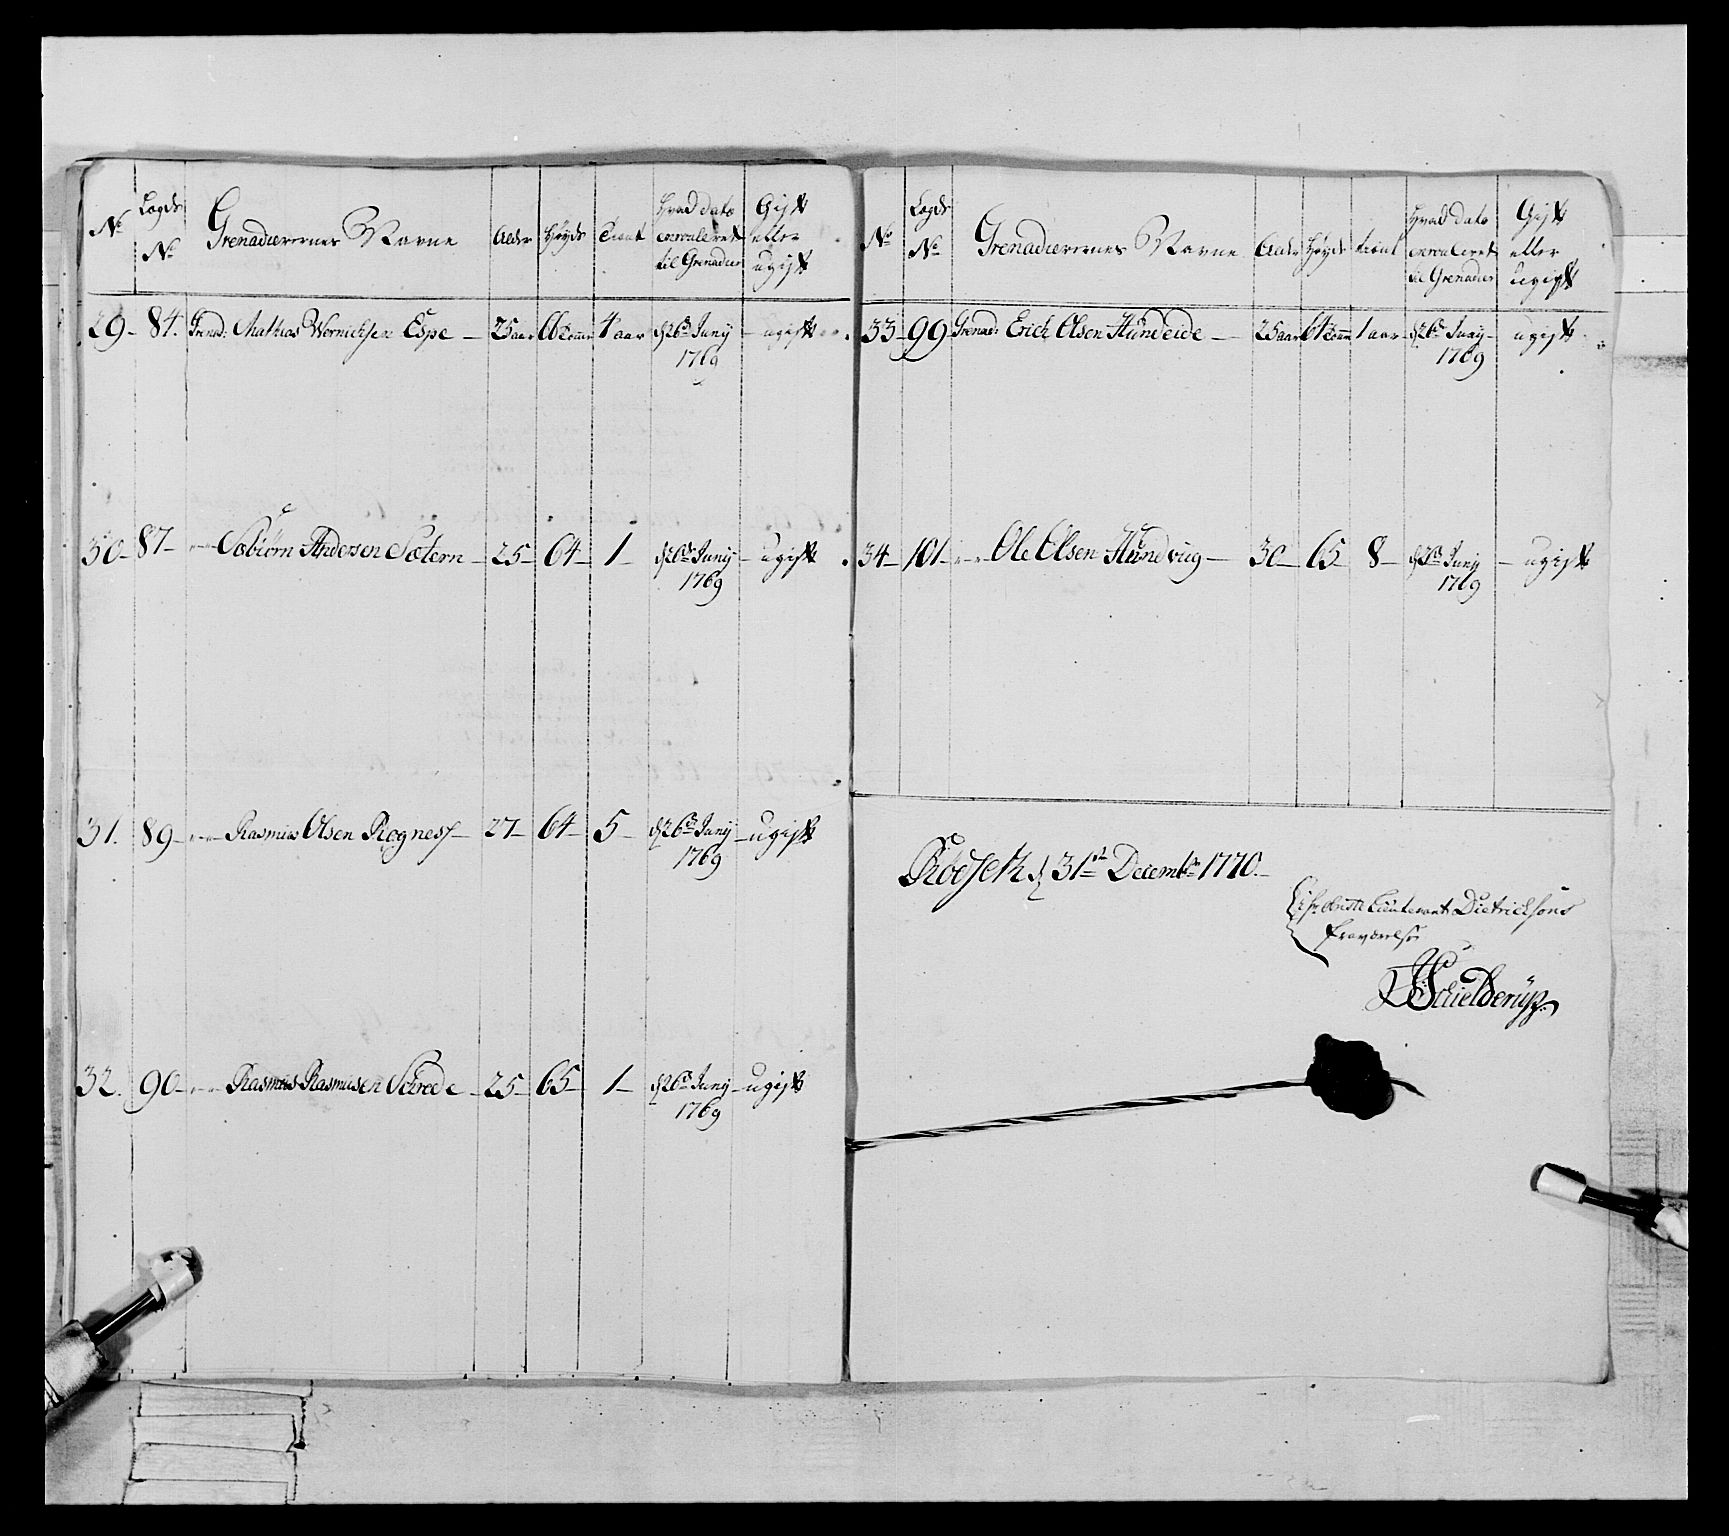 No
Lægds No
Grenadierernes Navne
Alder
Høyde
tient
Hvad dato
enroulleret
til Grenadier
Gift
eller
ugift
29- 84. Grenad: Mathias Wernichsen Espe - 25 aar 66 Tomer 4 aar d 26de Junij - ugift
1769
30- 87- Sæbiörn Andersen Sætern - 25- 64- 1- d 26de Junij - ugift
1769
31. 89- Rasmus Olsen Rognes - 27- 64- 5- d 26de Junij - ugift
1769
32. 90- Rasmus Rasmusen Schrede - 25- 65- 1- d 26de Junij - ugift
1769
No
Lægds No
Grenadierernes Navne
Alder
Høyde
tient
Hvad dato
enroulleret
til Grenadier
Gift
eller
ugift
33- 99 Grenad: Erich Olsen Hundeide - 25 aar 64 Tomm 1 aar d 26de Junij - ugift
1769
34- 101- Ole Olsen Hundvug - 30- 65- 8- Junij - ugift
1769
d 31te Decembr 1770.
i hr Obriste Lieutenant Dietricksons
fraværelse
Schielderup